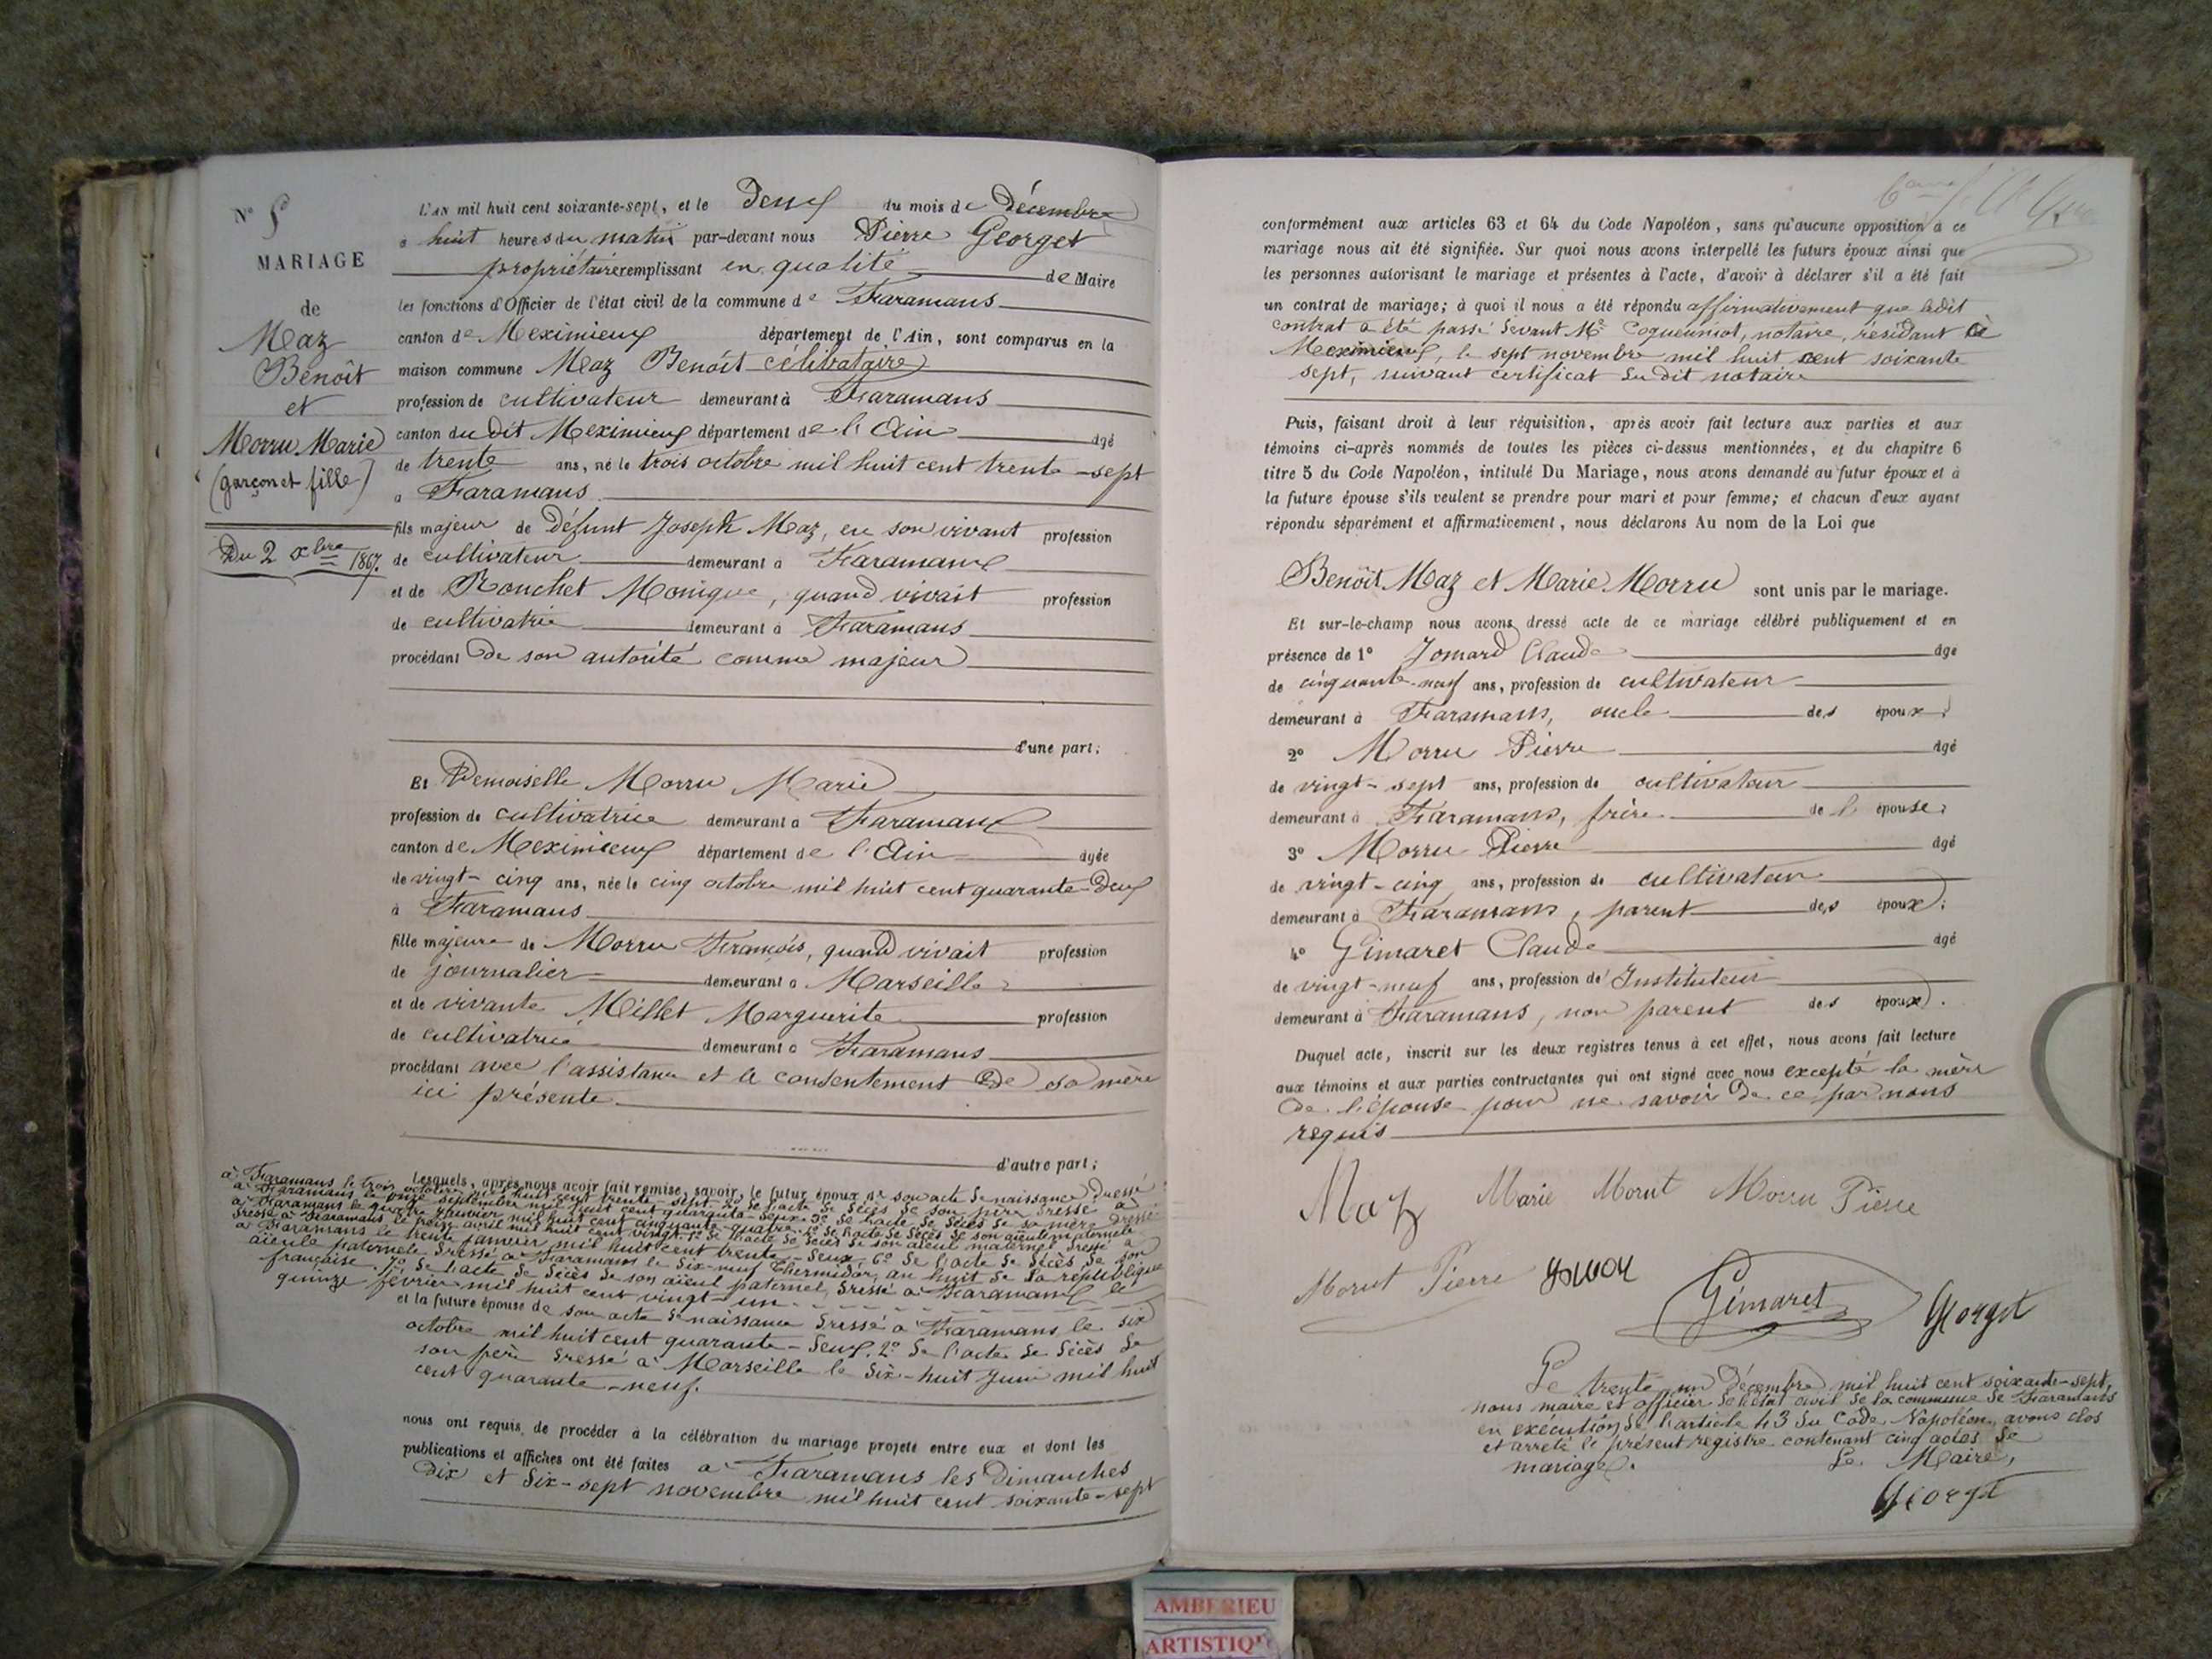 N° 5
MARIAGE
de
Maz
Benoît
et
Morru Marie
(garçon et fille)
Du 2 Xbre 1867.
L'AN mil huit cent soixante-sept, et le Deux du mois de Décembre
à huit heures du matin par-devant nous Pierre Georget
propriétaire remplissant en qualité de Maire
les fonctions d'Officier de l'état civil de la commune de Faramans
canton de Meximieux département de l'Ain, sont comparus en la
maison commune Maz Benoît célibataire
profession de cultivateur demeurant à Faramans
canton du dit Meximieux département de l'Ain âgé
de trente ans, né le trois octobre mil huit cent trente-sept
à Faramans
fils majeur de Défunt Joseph Maz, en son vivant profession
de cultivateur demeurant à Faramans
et de Rouchet Monique, quand vivait profession
de cultivatrice demeurant à Faramans
procédant de son autorité comme majeur
d'une part;
Et Demoiselle Morru Marie
profession de cultivatrice demeurant à Faramans
canton de Meximieux département de l'Ain âgée
de vingt-cinq ans, née le cinq octobre mil huit cent quarante-deux
à Faramans
fille majeure de Morru François, quand vivait profession
de journalier demeurant à Marseille
et de vivante Millet Marguerite profession
de cultivatrice demeurant à Faramans
procédant avec l'assistance et le consentement de sa mère
ici présente.
d'autre part;
Lesquels, après nous avoir fait remise, savoir, le futur époux 1° son acte de naissance dressé
à Faramans le trois octobre mil huit cent trente-sept. 2° de l'acte de décès de son père dressé à
à Faramans le onze septembre mil huit cent quarante-deux. 3° de l'acte de décès de sa mère dressé
à Faramans le quatre janvier mil huit cent cinquante-quatre. 4° de l'acte de décès de son aïeule maternelle
dressé à Faramans le avril mil huit cent vingt. 5° de l'acte de décès de son aïeul maternel dressé à
à Faramans le trente janvier mil huit cent trente-deux. 6° de l'acte de décès de son
aïeule paternelle dressé à Faramans le dix-neuf Thermidor an huit de la république
française. 7° de l'acte de décès de son aïeul paternel, dressé à Faramans le
quinze février mil huit cent vingt-un
et la future épouse de son acte de naissance dressé à Faramans le six
octobre mil huit cent quarante-deux. 2° de l'acte de décès de
son père dressé à Marseille le dix-huit juin mil huit
cent quarante-neuf.
nous ont requis de procéder à la célébration du mariage projeté entre eux et dont les
publications et affiches ont été faites à Faramans les Dimanches
dix et dix-sept novembre mil huit cent soixante-sept
conformément aux articles 63 et 64 du Code Napoléon, sans qu'aucune opposition à ce
mariage nous ait été signifiée. Sur quoi nous avons interpellé les futurs époux ainsi que
les personnes autorisant le mariage et présentes à l'acte, d'avoir à déclarer s'il a été fait
un contrat de mariage; à quoi il nous a été répondu affirmativement que ledit
contrat a été passé devant Me Coqueuniot, notaire, résidant à
Meximieux, le sept novembre mil huit cent soixante
sept, suivant certificat du dit notaire
Puis, faisant droit à leur réquisition, après avoir fait lecture aux parties et aux
témoins ci-après nommés de toutes les pièces ci-dessus mentionnées, et du chapitre 6
titre 5 du Code Napoléon, intitulé Du Mariage, nous avons demandé au futur époux et à
la future épouse s'ils veulent se prendre pour mari et pour femme; et chacun d'eux ayant
répondu séparément et affirmativement, nous déclarons Au nom de la Loi que
Benoît Maz et Marie Morru sont unis par le mariage.
Et sur-le-champ nous avons dressé acte de ce mariage célébré publiquement et en
présence de 1° Jomard Claude âgé
de cinquante-neuf ans, profession de cultivateur
demeurant à Faramans, oncle des époux;
2° Morru Pierre âgé
de vingt-sept ans, profession de cultivateur
demeurant à Faramans, frère de l' épouse;
3° Morru Pierre âgé
de vingt-cinq ans, profession de cultivateur
demeurant à Faramans, parent des époux;
4° Gimaret Claude âgé
de vingt-neuf ans, profession de Instituteur
demeurant à Faramans, non parent des époux.
Duquel acte, inscrit sur les deux registres tenus à cet effet, nous avons fait lecture
aux témoins et aux parties contractantes qui ont signé avec nous excepté la mère
de l'épouse pour ne savoir de ce par nous
requis
Maz Marie Morut Morru Pierre
Morut Pierre Gimaret Georget
Le trente-un Décembre mil huit cent soixante-sept,
nous maire et officier de l'état civil de la commune de Faramans
en exécution de l'article 43 du Code Napoléon, avons clos
et arrêté le présent registre contenant cinq actes de
mariage. Le Maire,
Georget
AMBERIEU
ARTISTIQ